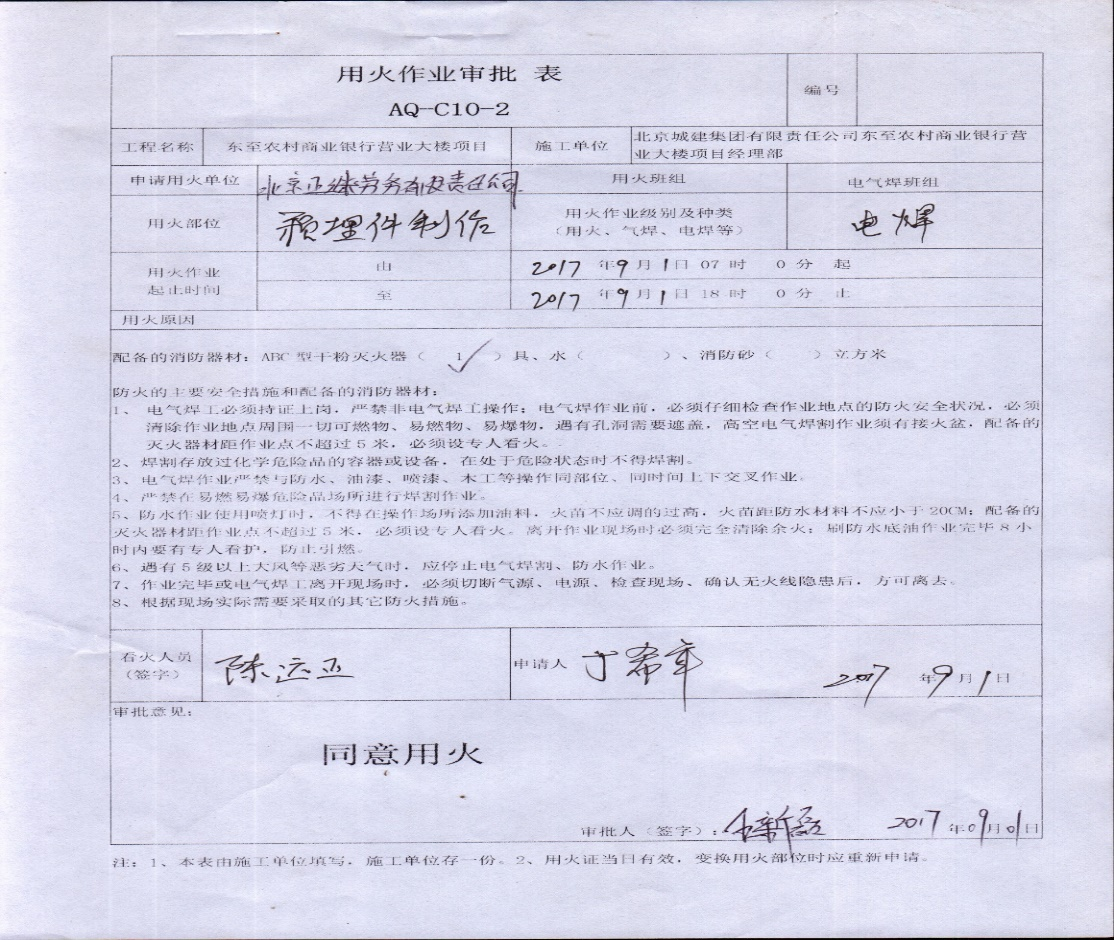 用火作业审批 表
AQ-C10-2
编号
工程名称 东至农村商业银行营业大楼项目 施工单位 北京城建集团有限责任公司东至农村商业银行营
业大楼项目经理部
申请用火单位 北京正 劳务有限责任公司 用火班组 电气焊班组
用火部位 预埋件制作 用火作业级别及种类
(用火、气焊、电焊等) 电焊
用火作业
起止时间
由 2017 年9月1日07时 0分 起
至 2017 年9月1日18时 0分 止
用火原因
配备的消防器材:ABC 型干粉灭火器( 1✓ )具、水( )、消防砂( )立方米
防火的主要安全措施和配备的消防器材:
1、 电气焊工必须持证上岗,严禁非电气焊工操作;电气焊作业前,必须仔细检查作业地点的防火安全状况,必须
清除作业地点周围一切可燃物、易燃物、易爆物,遇有孔洞需要遮盖,高空电气焊割作业须有接火盆,配备的
灭火器材距作业点不超过 5 米,必须设专人看火。
2、焊割存放过化学危险品的容器或设备,在处于危险状态时不得焊割。
3、电气焊作业严禁与防水、油漆、喷漆、木工等操作同部位、同时间上下交叉作业。
4、严禁在易燃易爆危险品场所进行焊割作业。
5、防水作业使用喷灯时,不得在操作场所添加油料,火苗不应调的过高,火苗距防水材料不应小于 20CM;配备的
灭火器材距作业点不超过 5 米,必须设专人看火。离开作业现场时必须完全清除余火;刷防水底油作业完毕 8 小
时内要有专人看护,防止引燃。
6、遇有 5 级以上大风等恶劣天气时,应停止电气焊割、防水作业。
7、作业完毕或电气焊工离开现场时,必须切断气源、电源,检查现场、确认无火线隐患后,方可离去。
8、根据现场实际需要采取的其它防火措施。
看火人员
(签字) 陈远正 申请人 于希军 2017 年9月1日
审批意见:
同意用火
审批人(签字): 新磊 2017 年09月01日
注:1、本表由施工单位填写,施工单位存一份。2、用火证当日有效,变换用火部位时应重新申请。